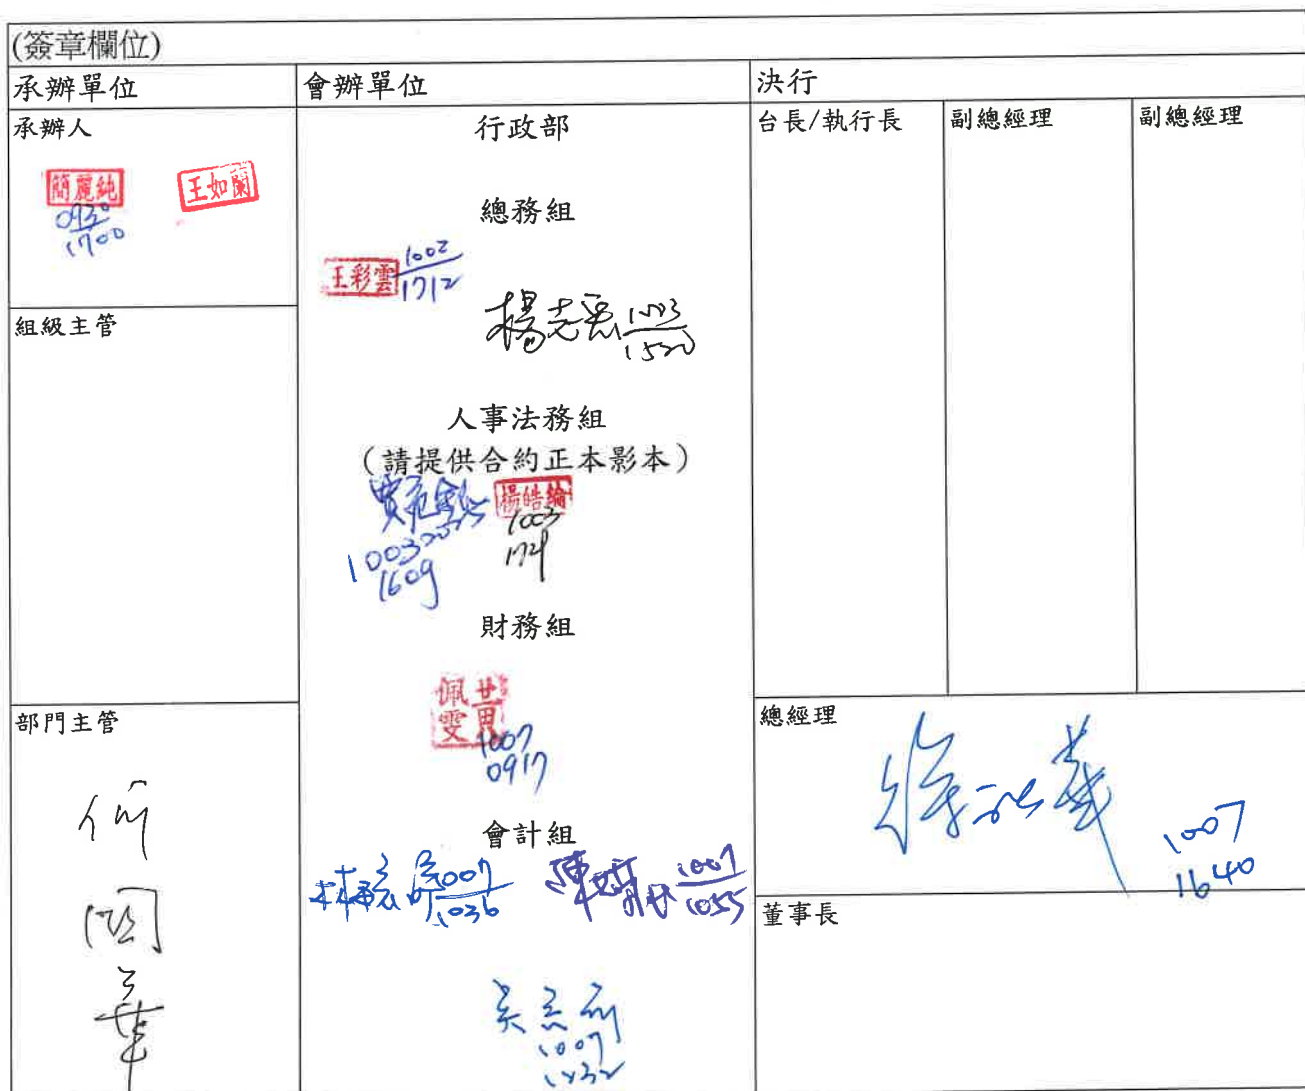 (簽章欄位)
承辦單位
會辦單位
決行
承辦人
簡麗純
0930
1700
王如蘭
組級主管
部門主管
何
國
華
行政部
總務組
王彩雲
1002
1712
楊志
1003
1520
人事法務組
(請提供合約正本影本)
1003
1609
楊皓綸
1003
1721
財務組
甘
佩雯
1007
0917
會計組
林
1007
1036
陳
1007
1055
吳
1007
1232
台長/執行長
副總經理
副總經理
總經理
徐 華
1007
1640
董事長